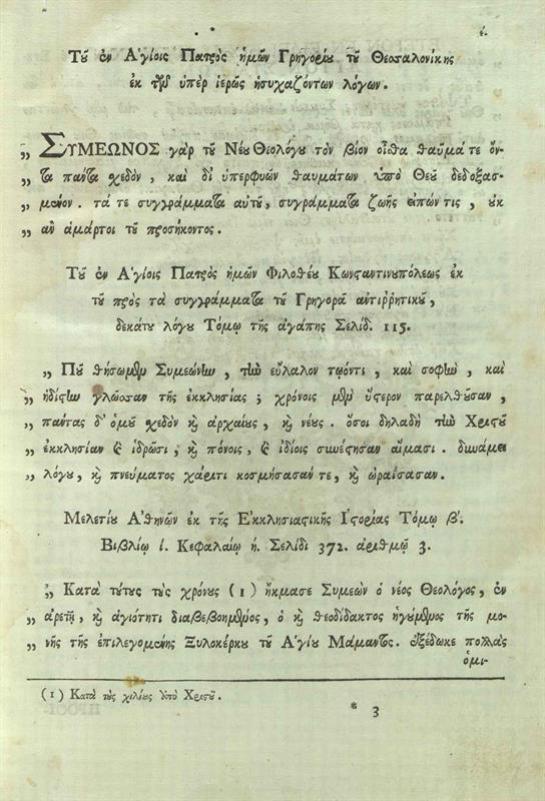 έ.
Τοῦ ἐν Ἁγίοις Πατρὸς ἡμῶν Γρηγορίου τοῦ Θεσσαλονίκης
ἐκ τῶν ὑπὲρ ἱερῶς ἡσυχαζόντων λόγων.
„ ΣΥΜΕΩΝΟΣ γὰρ τοῦ Νέου Θεολόγου τὸν βίον οἶσθα θαῦμά τε ὄν-
„ τα πάντα σχεδὸν, καὶ δι' ὑπερφυῶν θαυμάτων ὑπὸ Θεοῦ δεδοξασ-
„ μένον. τά τε συγγράμματα αὐτοῦ, συγγράμματα ζωῆς εἰπών τις, οὐκ
„ ἂν ἁμάρτοι τοῦ προσήκοντος.
Τοῦ ἐν Ἁγίοις Πατρὸς ἡμῶν Φιλοθέου Κωνσταντινουπόλεως ἐκ
τοῦ πρὸς τὰ συγγράμματα τοῦ Γρηγορᾶ ἀντιῤῥητικοῦ,
δεκάτου λόγου Τόμῳ τῆς ἀγάπης Σελίδ. 115.
„ Ποῦ θήσωμεν Συμεώνην, τὴν εὔλαλον τῳόντι, καὶ σοφὴν, καὶ
„ ἡδίστην γλῶσσαν τῆς ἐκκλησίας; χρόνοις μὲν ὕστερον παρελθοῦσαν,
„ πάντας δ' ὁμοῦ σχεδὸν καὶ ἀρχαίους, καὶ νέους. ὅσοι δηλαδὴ τὴν Χριστοῦ
„ ἐκκλησίαν καὶ ἱδρῶσι, καὶ πόνοις, καὶ ἰδίοις συνέστησαν αἵμασι. δυνάμει
„ λόγου, καὶ πνεύματος χάριτι κοσμήσασάν τε, καὶ ὡραΐσασαν.
Μελετίου Ἀθηνῶν ἐκ τῆς Ἐκκλησιαστικῆς Ἱστορίας Τόμῳ β'.
Βιβλίῳ ί. Κεφαλαίῳ ή. Σελίδι 372. ἀριθμῷ 3.
„ Κατὰ τούτους τοὺς χρόνους (1) ἤκμασε Συμεὼν ὁ νέος Θεολόγος, ἐν
„ ἀρετῇ, καὶ ἁγιότητι διαβεβοημένος, ὁ καὶ θεοδίδακτος ἡγούμενος τῆς μο-
„ νῆς τῆς ἐπιλεγομένης Ξυλοκέρκου τοῦ Ἁγίου Μάμαντος. ἐξέδωκε πολλὰς
ὁμι-
(1) Κατὰ τοὺς χιλίους ἀπὸ Χριστοῦ.
* 3